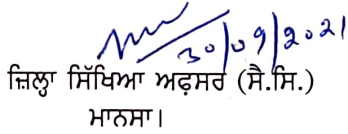 30/09/2021
ਜ਼ਿਲ੍ਹਾ ਸਿੱਖਿਆ ਅਫ਼ਸਰ (ਸੈ.ਸਿ.)
ਮਾਨਸਾ।